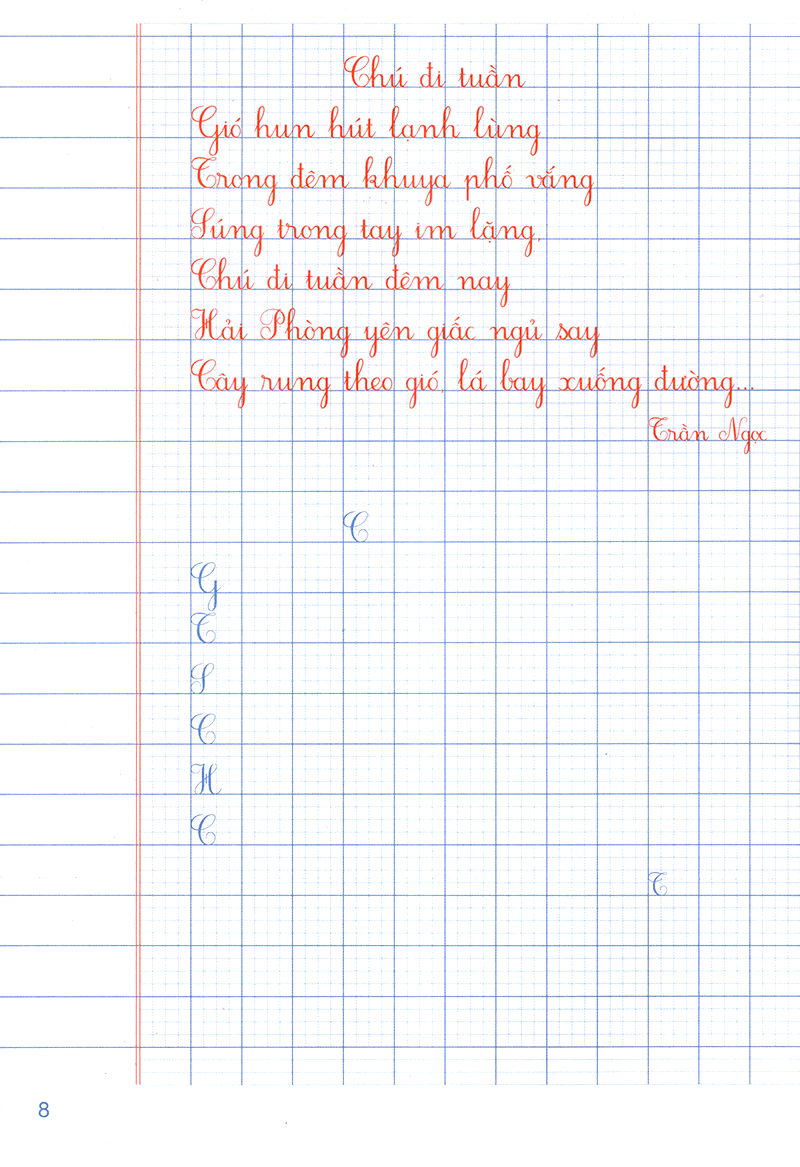 Chú đi tuần
Gió hun hút lạnh lùng
Trong đêm khuya phố vắng
Súng trong tay im lặng,
Chú đi tuần đêm nay
Hải Phòng yên giấc ngủ say
Cây rung theo gió, lá bay xuống đường...
Trần Ngọc
C
G
T
S
C
H
C
T
8